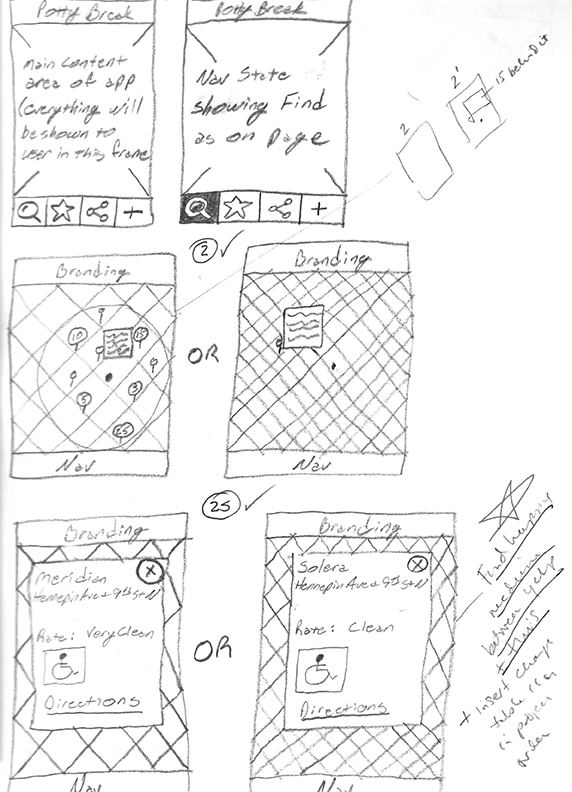 Potty Break
Main Content
area of app
(everything will
be shown to
user in this frame
+
Potty Break
Nav State
showing Find
as on page
+
2
2'
is behind it
2 ✓
Branding
10
15
5
3
25
Nav
OR
Branding
Nav
25 ✓
Branding
X
Meridian
Hennepin Ave + 9th St N
Rate: Very Clean
Directions
Nav
OR
Branding
X
Solera
Hennepin Ave + 9th St N
Rate: Clean
Directions
Nav
Find happy
medium
between yelp
+ this
+ insert change
table
in proper
order